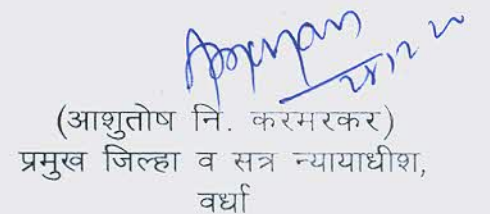 (आशुतोष नि. करमरकर)
प्रमुख जिल्हा व सत्र न्यायाधीश,
वर्धा